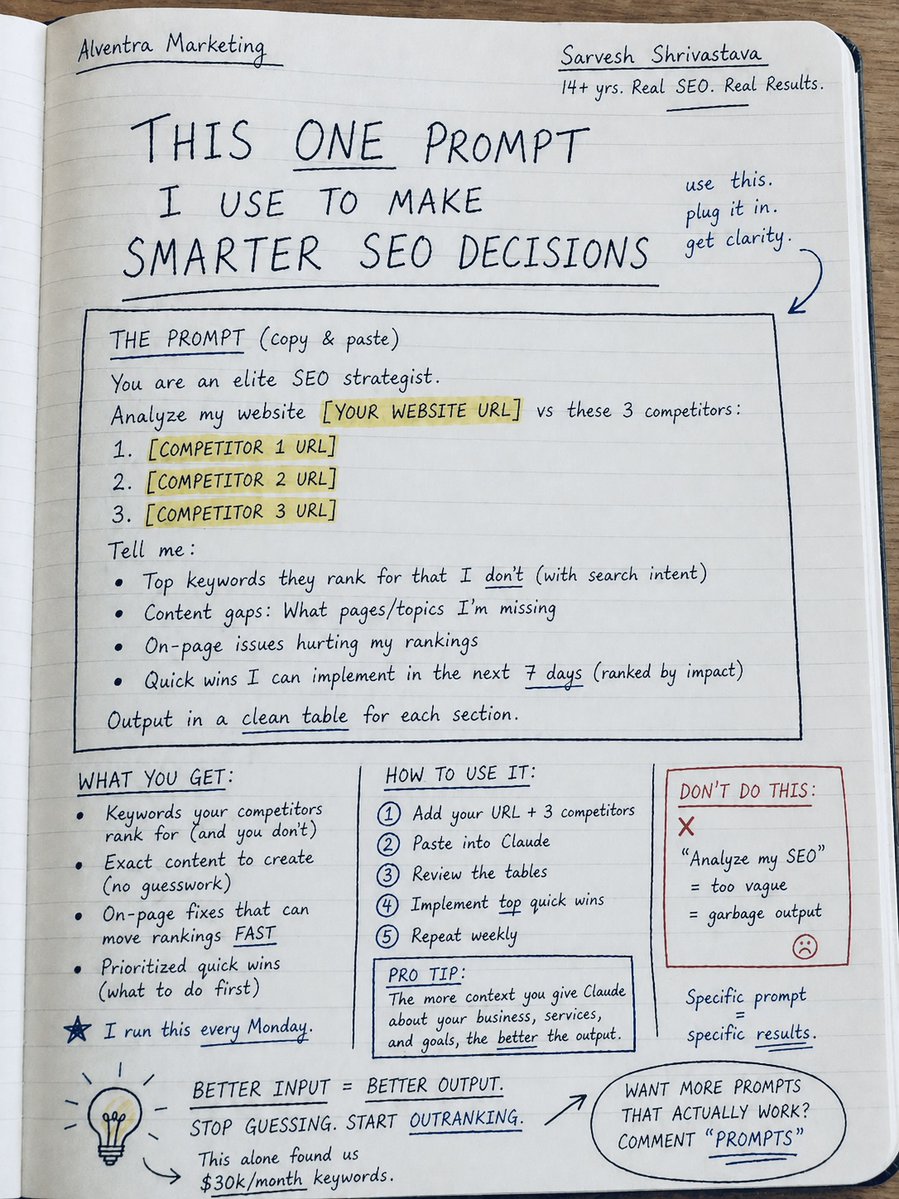 Alventra Marketing
Sarvesh Shrivastava
14+ yrs. Real SEO. Real Results.
THIS ONE PROMPT
I USE TO MAKE
SMARTER SEO DECISIONS
use this.
plug it in.
get clarity.
THE PROMPT (copy & paste)
You are an elite SEO strategist.
Analyze my website [YOUR WEBSITE URL] vs these 3 competitors:
1. [COMPETITOR 1 URL]
2. [COMPETITOR 2 URL]
3. [COMPETITOR 3 URL]
Tell me:
• Top keywords they rank for that I don't (with search intent)
• Content gaps: What pages/topics I'm missing
• On-page issues hurting my rankings
• Quick wins I can implement in the next 7 days (ranked by impact)
Output in a clean table for each section.
WHAT YOU GET:
• Keywords your competitors
rank for (and you don't)
• Exact content to create
(no guesswork)
• On-page fixes that can
move rankings FAST
• Prioritized quick wins
(what to do first)
★ I run this every Monday.
HOW TO USE IT:
① Add your URL + 3 competitors
② Paste into Claude
③ Review the tables
④ Implement top quick wins
⑤ Repeat weekly
PRO TIP:
The more context you give Claude
about your business, services,
and goals, the better the output.
DON'T DO THIS:
X
"Analyze my SEO"
= too vague
= garbage output
Specific prompt
=
specific results.
BETTER INPUT = BETTER OUTPUT.
STOP GUESSING. START OUTRANKING.
This alone found us
$30k/month keywords.
WANT MORE PROMPTS
THAT ACTUALLY WORK?
COMMENT "PROMPTS"